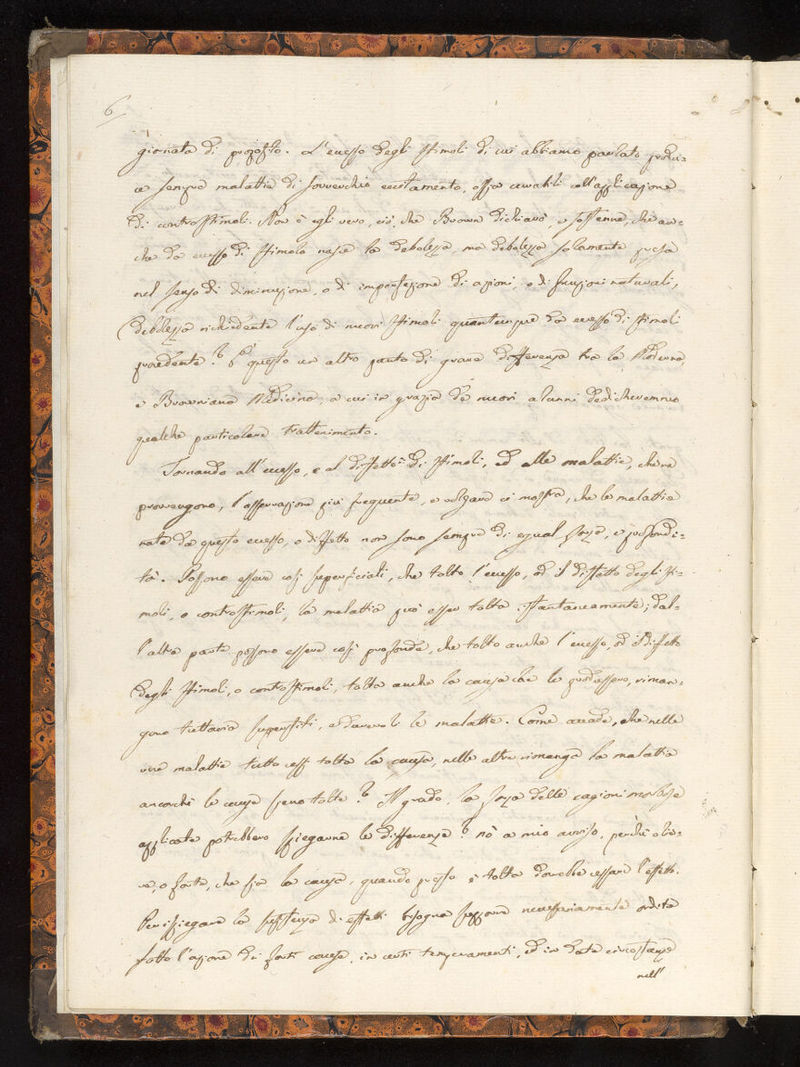 6/
giornata di proposito. L'eccesso degli stimoli di cui abbiamo parlato produ-
ce sempre malattie di soverchio eccitamento, ossa curabili coll'applicazione
di controstimoli. Non è egli vero, ciò, che Brown dichiarò, e sostenne, che an-
che da eccesso di stimolo nasce la debolezza, ma debolezza solamente presa
nel senso di diminuzione, o di imperfezione di azioni, o di funzioni naturali,
debolezza richiedente l'uso di nuovi stimoli quantunque da eccesso di stimoli
procedente? è questo un altro punto di grave differenza tra la Moderna,
e Browniana Medicina, a cui in grazia de' nuovi alunni dedicheremmo
qualche particolare trattenimento.
Tornando all'eccesso, e al difetto di stimoli, ed alle malattie, che ne
provvengono, l'osservazione più frequente, e volgare ci mostra, che le malattie
nate da questo eccesso, o difetto non sono sempre di egual forza, e profondi-
tà. Possono essere così superficiali, che tolto l'eccesso, od il difetto degli sti-
moli, o controstimoli, la malattia può esser tolta istantaneamente; dal-
l'altra parte possono essere così profonde, che tolto anche l'eccesso, od il difetto
degli stimoli, o controstimoli, tolta anche la causa che le produssero, riman-
gono tuttavia superstiti, e durevoli le malattie. Come accade, che nelle
une malattie tutto cessi tolta la causa, nelle altre rimanga la malattia
ancorchè le cause sieno tolte? Il grado, la forza delle cagioni morbose
applicate potrebbero spiegarne le differenze? nò a mio avviso, perchè o lie-
ve, o forte, che sia la causa, quando questa è tolta dovrebbe cessare l'effetto.
Per ispiegare la sussistenza di effetti bisogna supporre necessariamente ordita
sotto l'azione di forti cause, in certi temperamenti, ed in date circostanze
nell'